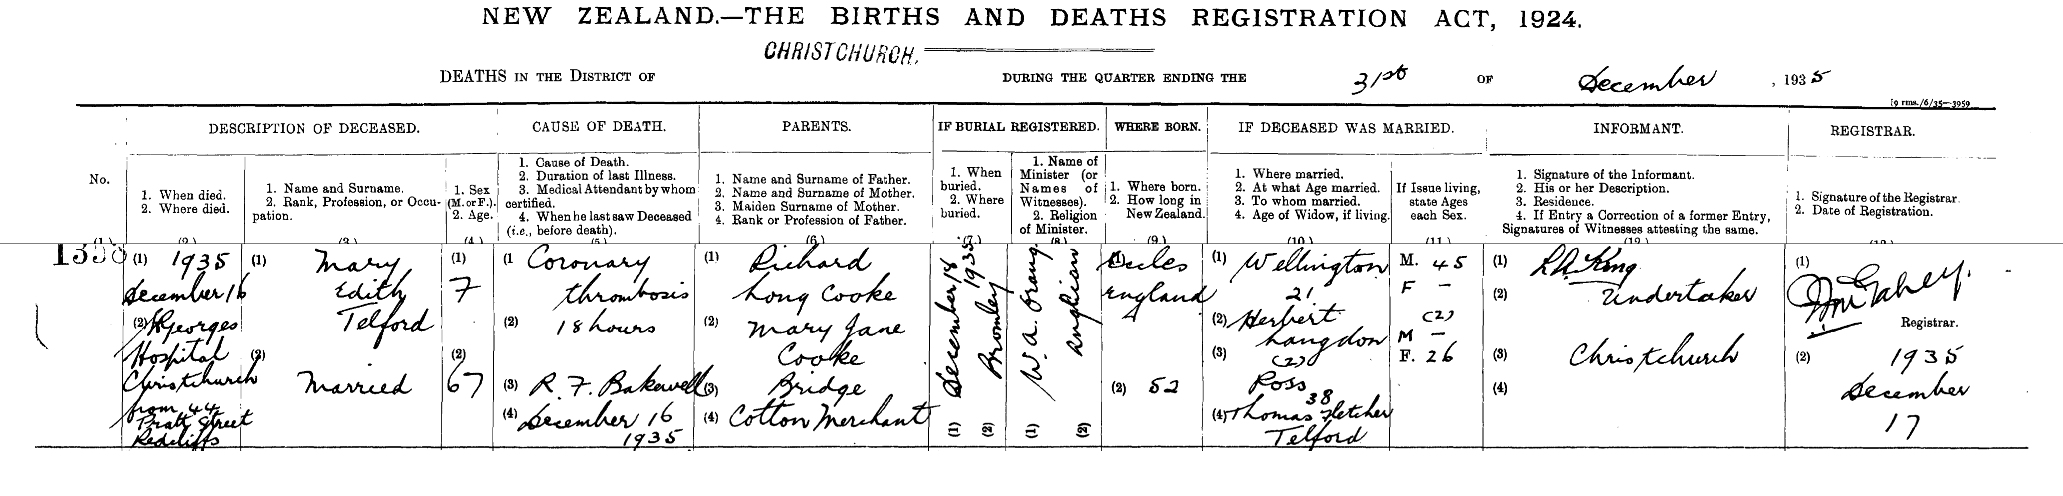 NEW ZEALAND.—THE BIRTHS AND DEATHS REGISTRATION ACT, 1924.
CHRISTCHURCH.
DEATHS IN THE DISTRICT OF DURING THE QUARTER ENDING THE 31st OF December, 1935
[9 rms./6/35—3959
DESCRIPTION OF DECEASED. CAUSE OF DEATH. PARENTS. IF BURIAL REGISTERED. WHERE BORN. IF DECEASED WAS MARRIED. INFORMANT. REGISTRAR.
No.
1. When died.
2. Where died.
1. Name and Surname.
2. Rank, Profession, or Occu-
pation.
1. Sex
(M. or F.).
2. Age.
1. Cause of Death.
2. Duration of last Illness.
3. Medical Attendant by whom
certified.
4. When he last saw Deceased
(i.e., before death).
1. Name and Surname of Father.
2. Name and Surname of Mother.
3. Maiden Surname of Mother.
4. Rank or Profession of Father.
1. When
buried.
2. Where
buried.
1. Name of
Minister (or
Names of
Witnesses).
2. Religion
of Minister.
1. Where born.
2. How long in
New Zealand.
1. Where married.
2. At what Age married.
3. To whom married.
4. Age of Widow, if living.
If Issue living,
state Ages
each Sex.
1. Signature of the Informant.
2. His or her Description.
3. Residence.
4. If Entry a Correction of a former Entry,
Signatures of Witnesses attesting the same.
1. Signature of the Registrar.
2. Date of Registration.
(1) 1935
December 16
(2) St Georges
Hospital
Christchurch
from 44
Pratt Street
Redcliffs
(1) Mary
Edith
Telford
(2)
Married
(1)
F
(2)
67
(1 Coronary
thrombosis
(2) 18 hours
(3) R. F. Bakewell
(4) December 16
1935
(1) Richard
Long Cooke
(2) Mary Jane
Cooke
(3) Bridge
(4) Cotton Merchant
(1) December 18
1935
(2) Bromley
(1) W. A. Orange
(2) Anglican
(1) Eccles
England
(2) 52
(1) Wellington
21
(2) Herbert
Langdon
(3) (2)
Ross
38
(4) Thomas Fletcher
Telford
M. 45
F –
(2)
M –
F. 26
(1) R.A. King
(2) Undertaker
(3) Christchurch
(4)
(1)
Registrar.
(2) 1935
December
17